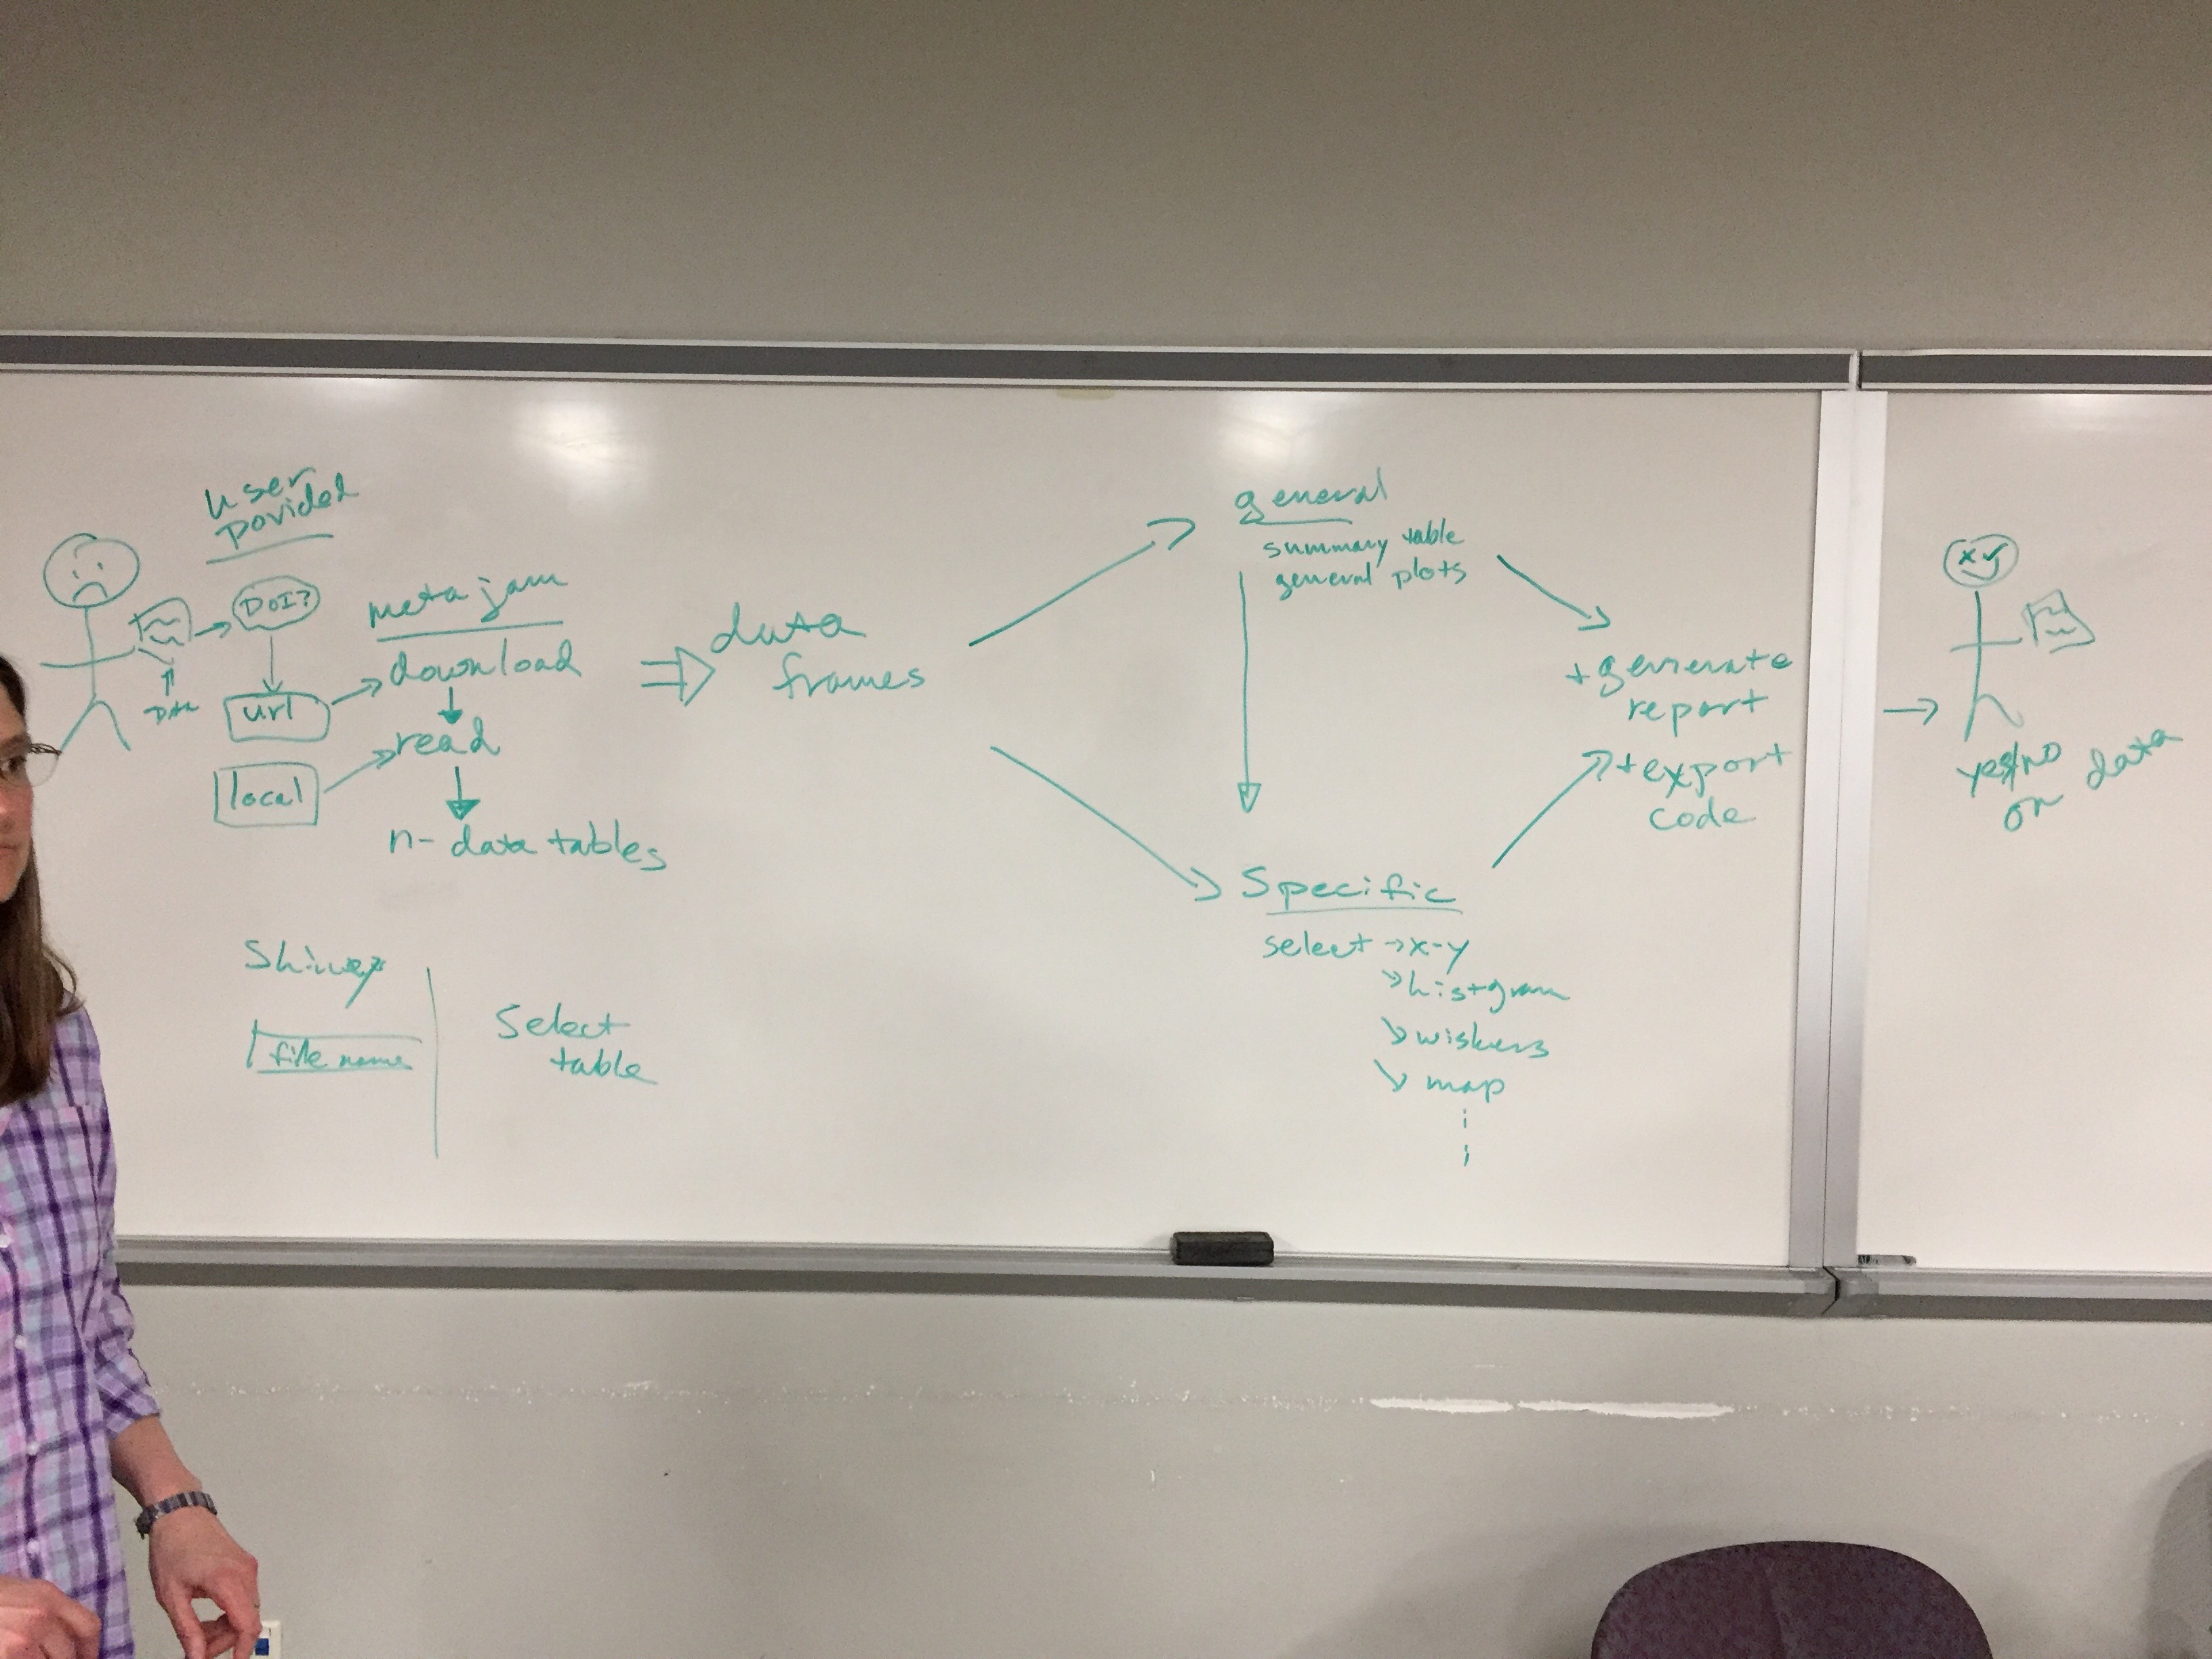 user
povided
DOI?
url
local
metajam
download
read
n-data tables
data
frames
general
summary table
general plots
Specific
select → x-y
→ histgram
→ wiskers
→ map
+ generate
report
+ export
code
yes/no
on data
Shiney
file name
Select
table